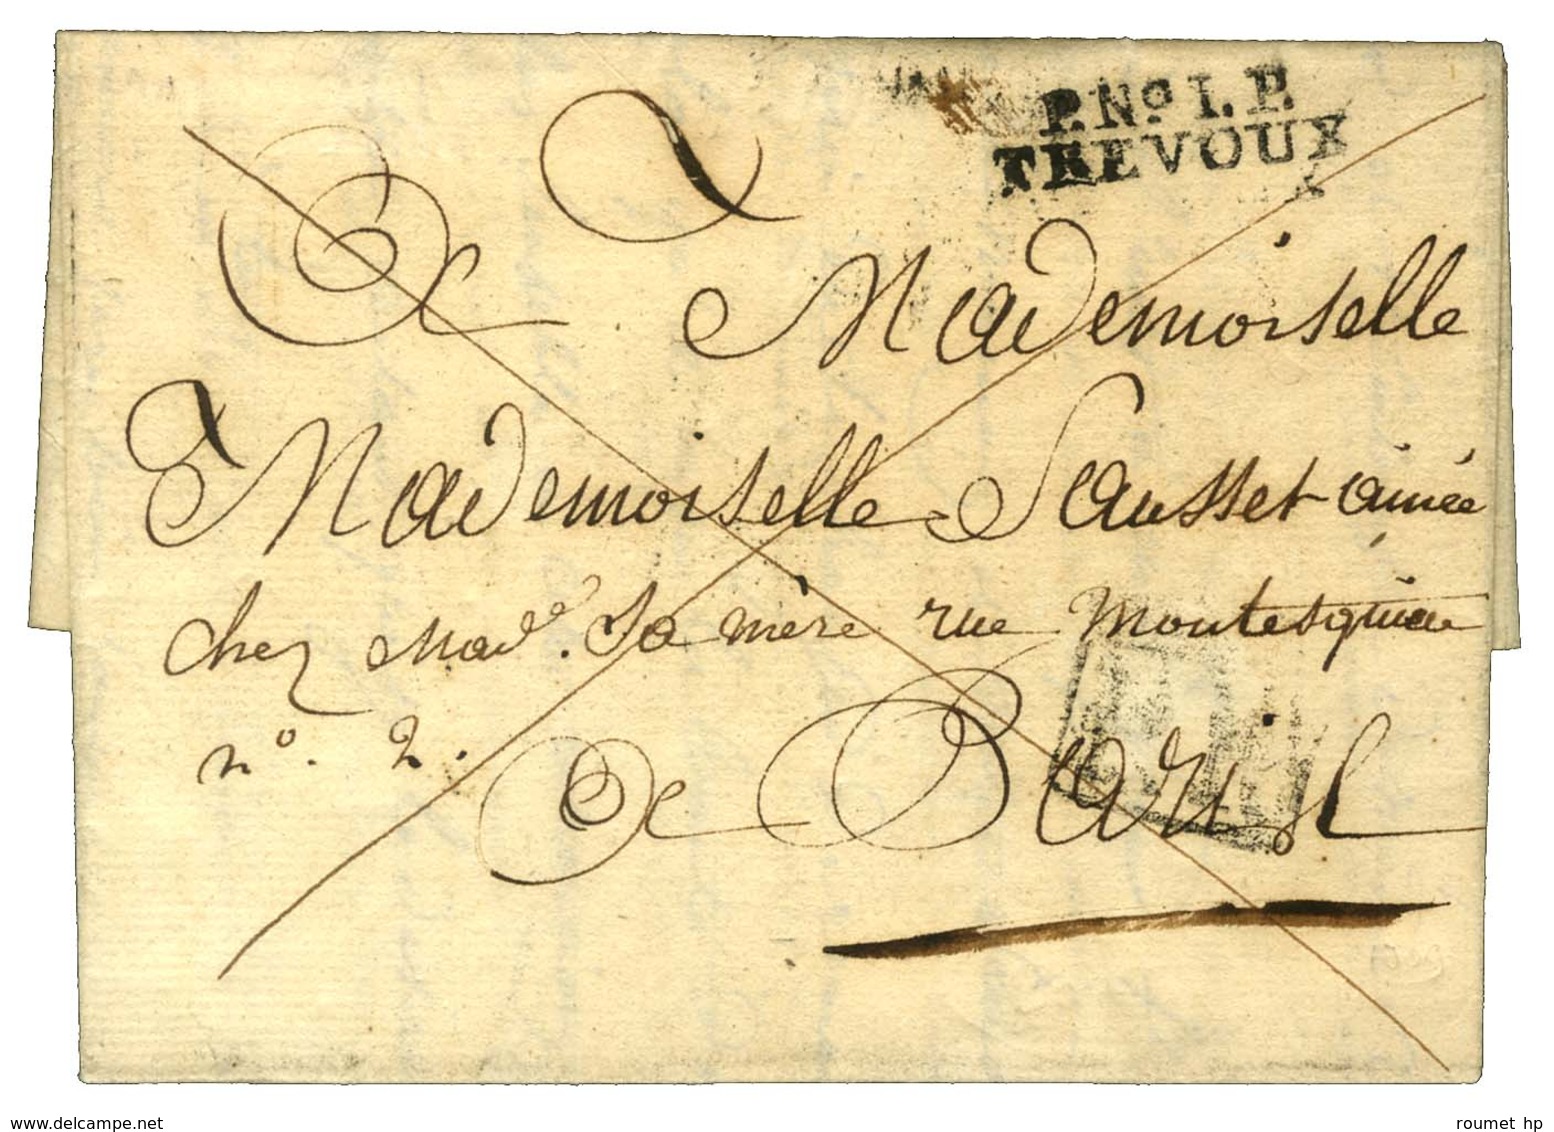 P. Nº I. P.
TREVOUX
A Mademoiselle
Mademoiselle Sausset ainée
chez Made. Sa mère rue Montesquieu
nº. 2.
A Paris
www.delcampe.net
roumet hp